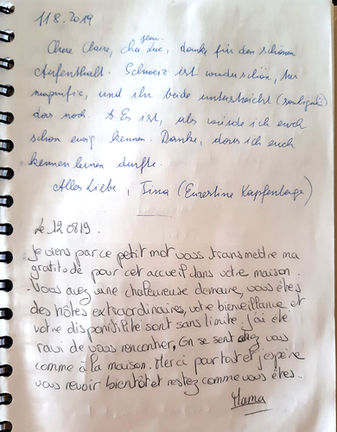 11.8.2019
Jean
Chère Claire, cher Luc, danke für den schönen
Aufenthalt. Schweiz ist wunderschön, très
magnific, und ihr beide unterstreicht (souligner)
das noch. Es ist, als würde ich euch
schon ewig kennen. Danke, dass ich euch
kennenlernen durfte.
Alles Liebe, Tina (Ernestine Kapfenberger)
Le 12 0819.
Je viens par ce petit mot vous transmettre ma
gratitude pour cet accueil dans votre maison.
Vous avez une chaleureuse demeure, vous êtes
des hôtes extraordinaires, votre bienveillance et
votre disponibilité sont sans limite. j'ai été
ravi de vous rencontrer, On se sent chez vous
comme à la maison. Merci pour tout et j'espère
vous revoir bientôt et restez comme vous êtes.
Mama